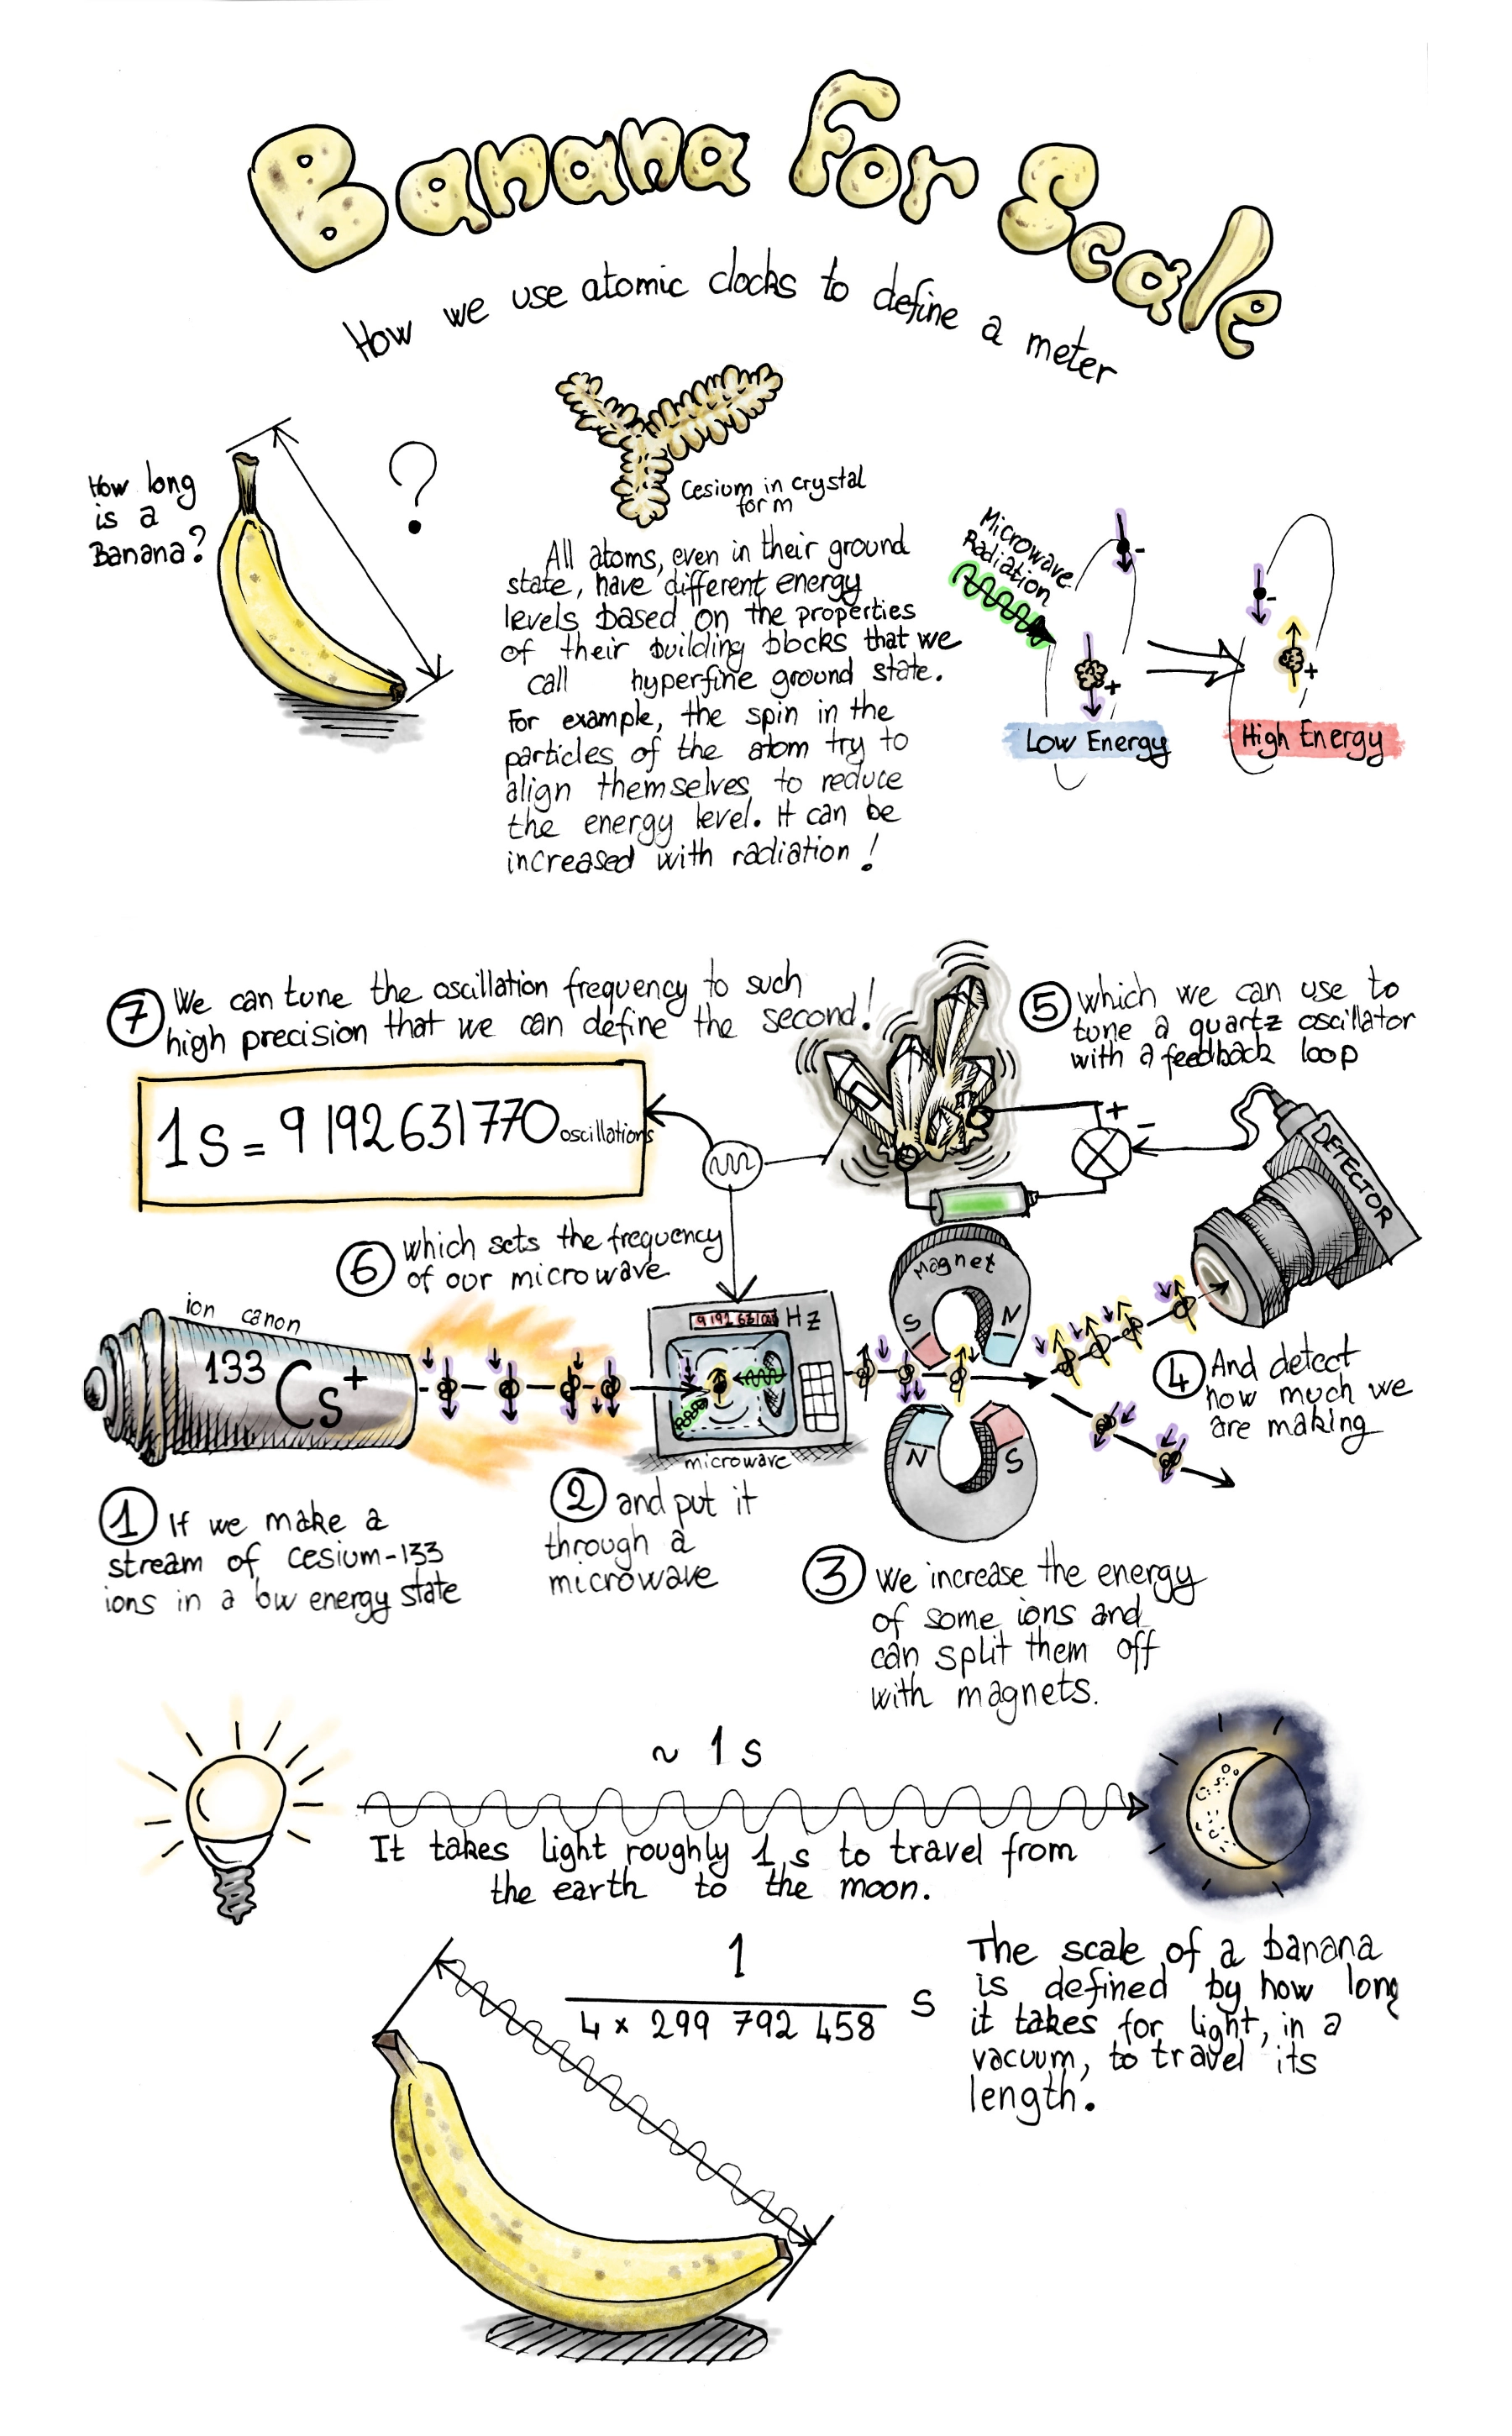 Banana For Scale
How we use atomic clocks to define a meter
How long
is a
Banana?
?
Cesium in crystal
form
All atoms, even in their ground
state, have different energy
levels based on the properties
of their building blocks that we
call hyperfine ground state.
For example, the spin in the
particles of the atom try to
align themselves to reduce
the energy level. It can be
increased with radiation!
Microwave
Radiation
-
+
Low Energy
-
+
High Energy
7 We can tune the oscillation frequency to such
high precision that we can define the second!
1s = 9 192 631 770 oscillations
5 which we can use to
tune a quartz oscillator
with a feedback loop
+
-
DETECTOR
6 which sets the frequency
of our microwave
ion canon
133 Cs+
Hz
microwave
Magnet
S N
N S
4 And detect
how much we
are making
1 If we make a
stream of cesium-133
ions in a low energy state
2 and put it
through a
microwave
3 We increase the energy
of some ions and
can split them off
with magnets.
~ 1 s
It takes light roughly 1 s to travel from
the earth to the moon.
1
4 x 299 792 458 s
The scale of a banana
is defined by how long
it takes for light, in a
vacuum, to travel its
length.